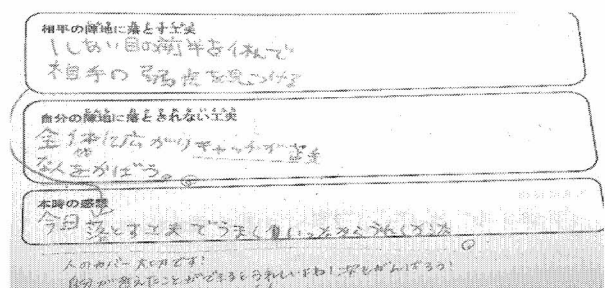 相手の陣地に落とす工夫
1しあい目の前半を休んで
相手の弱点を見つける
自分の陣地に落とされない工夫
全体に広がりキャッチが苦手
な人をかばう。
本時の感想
今日 落とす工夫で うまく
人のカバー大切です!
自分が考えたことができるとうれしいよね!次もがんばろう!